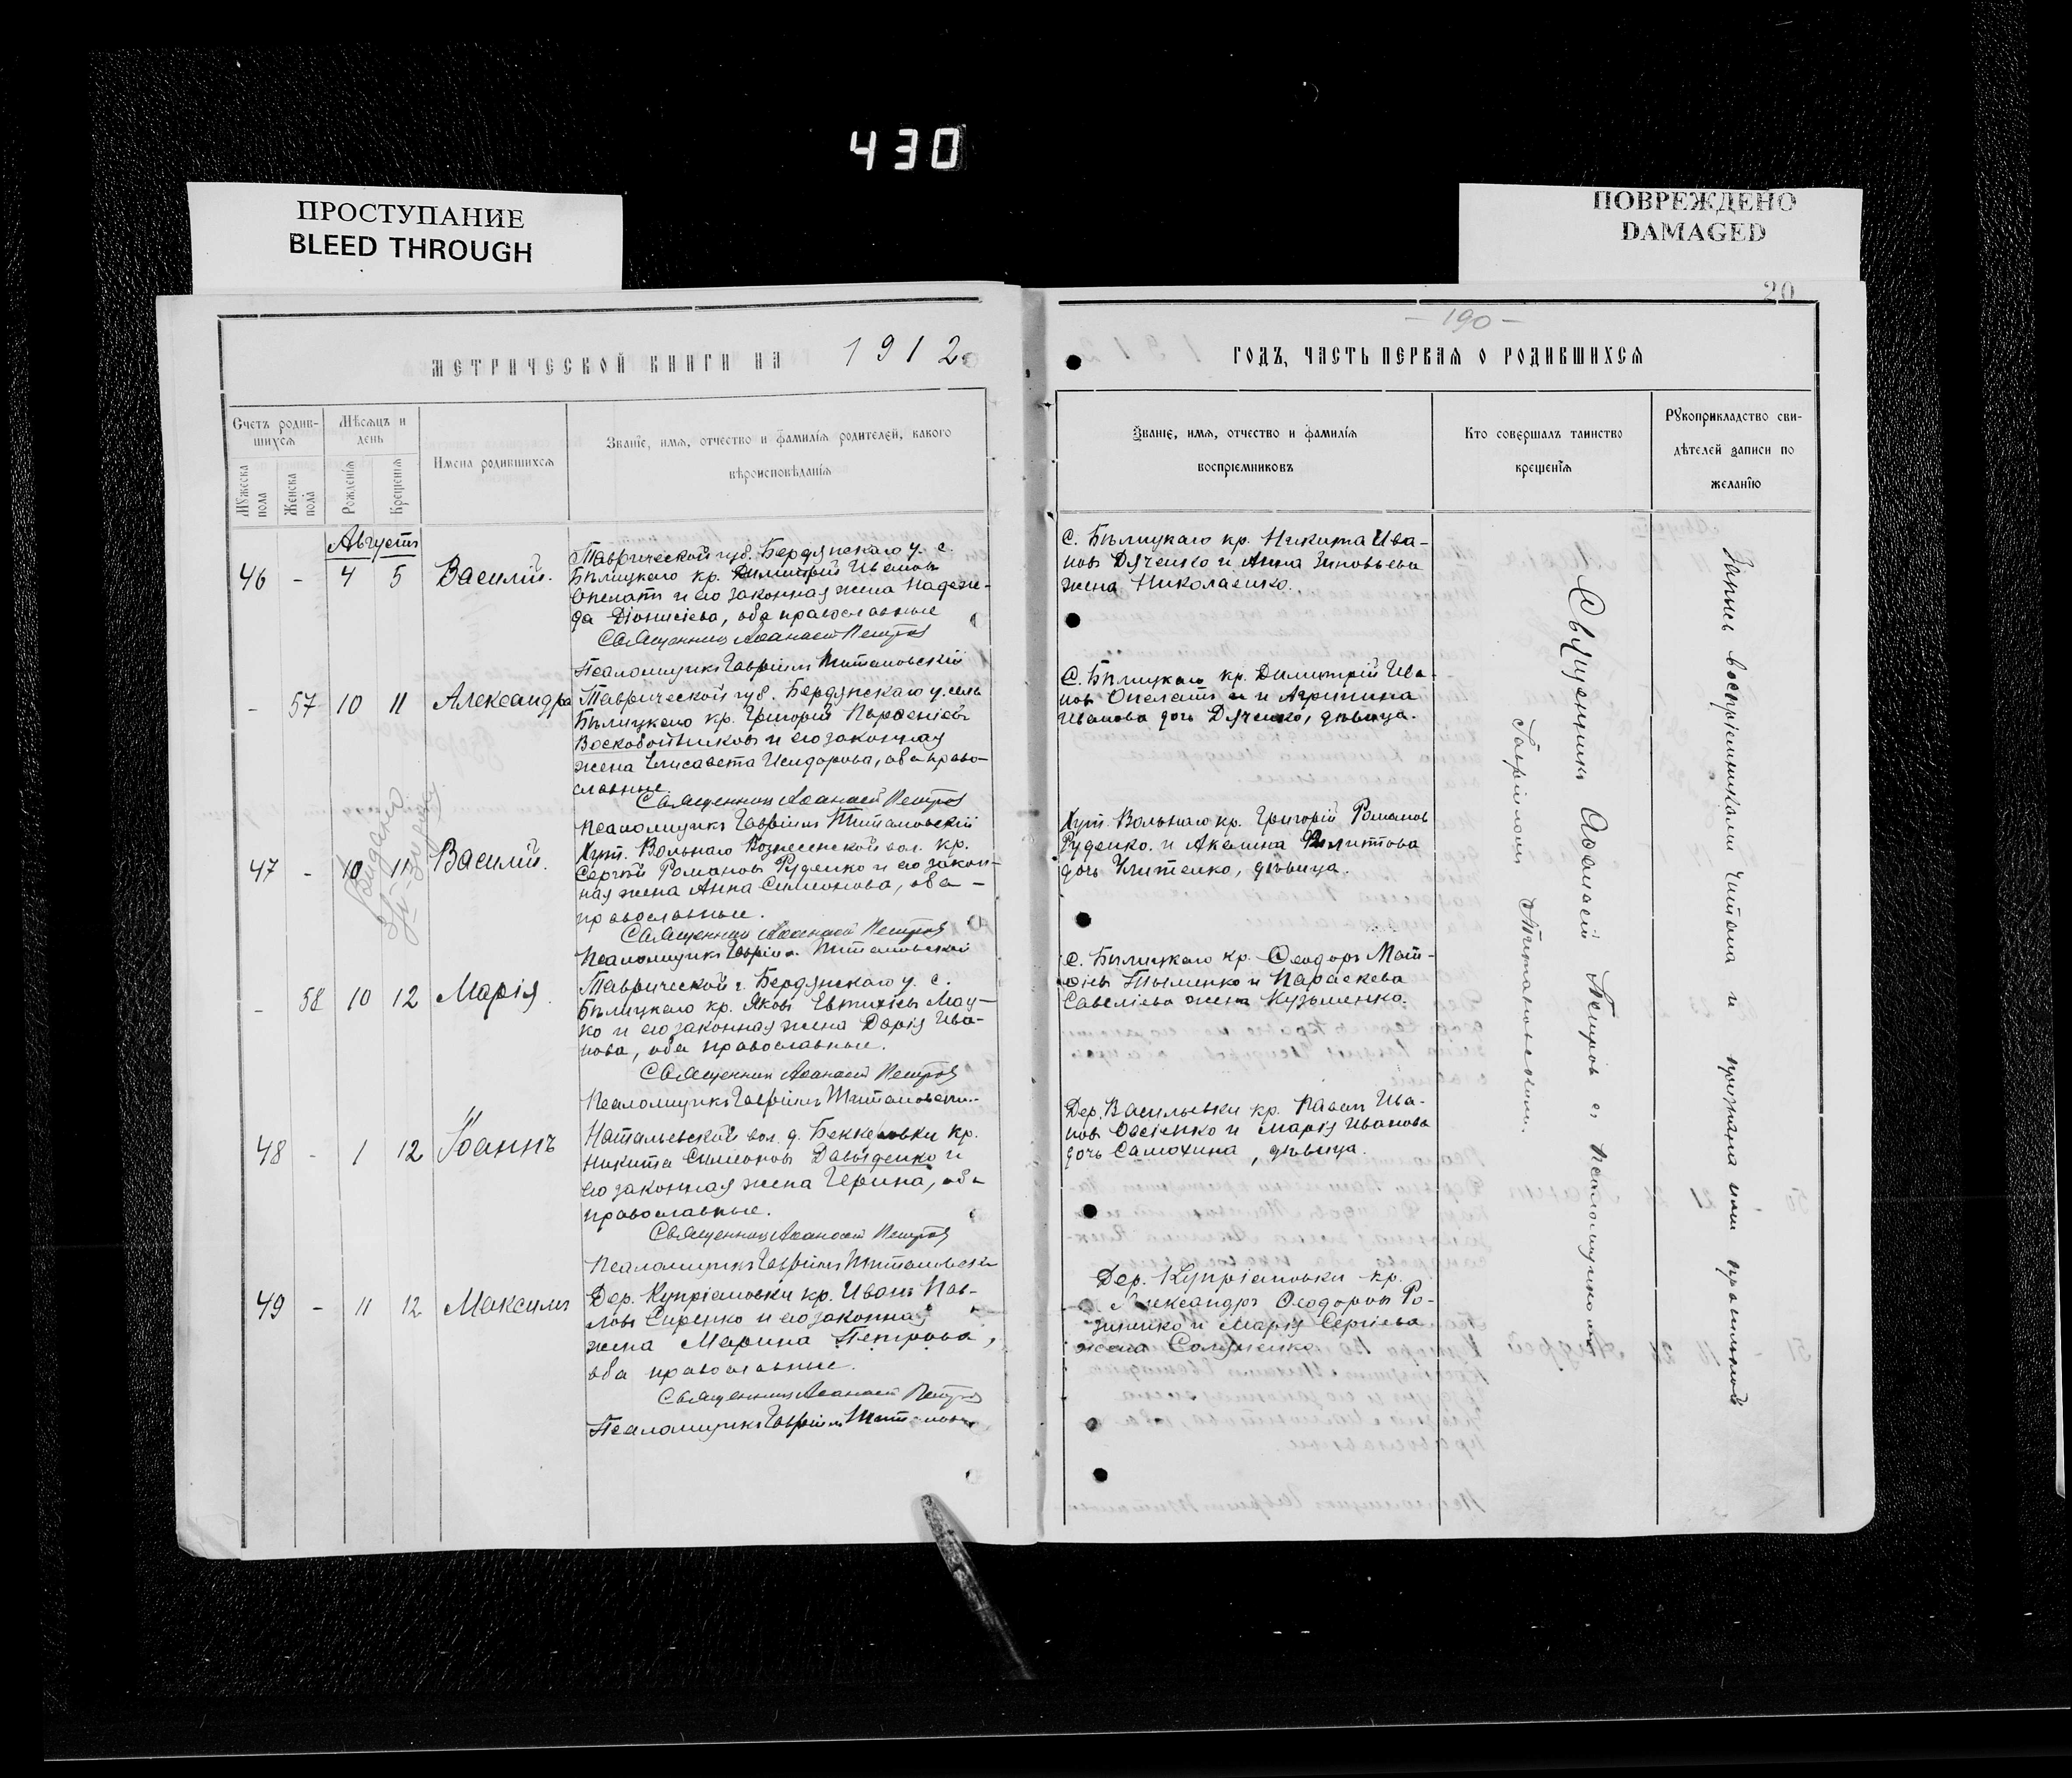 430
ПРОСТУПАНИЕ
BLEED THROUGH
ПОВРЕЖДЕНО
DAMAGED
20
МЕТРИЧЕСКОЙ КНИГИ НА 1912
Счетъ родив-
шихся
Мѣсяцъ и
день
Мужеска
пола
Женска
пола
Рожденія
Крещенія
Имена родившихся
Званіе, имя, отчество и фамилія родителей, какого
вѣроисповѣданія
Августъ
46 - 4 5 Василій.
Таврической губ. Бердянскаго у. с.
Бѣлицкаго кр. Димитрій Ивановъ
Опелатъ и его законная жена Надеж-
да Діонисіева, оба православные
Священникъ Аѳанасій Петровъ
Псаломщикъ Гавріилъ Титановскій
- 57 10 11 Александра
Таврической губ. Бердянскаго у. села
Бѣлицкаго кр. Григорій Парѳеніевъ
Воскобойниковъ и его законная
жена Елисавета Исидорова, оба право-
славные.
Священникъ Аѳанасій Петровъ
Псаломщикъ Гавріилъ Титановскій
47 - 10 11 Василій.
Хут. Вольнаго Вознесенской вол. кр.
Сергѣй Романовъ Руденко и его закон-
ная жена Анна Симонова, оба -
православные.
Священникъ Аѳанасій Петровъ
Псаломщикъ Гавріилъ Титановскій
- 58 10 12 Марія
Таврической г. Бердянскаго у. с.
Бѣлицкаго кр. Яковъ Евтихіевъ Мац-
ко и его законная жена Дарія Ива-
нова, оба православные.
Священникъ Аѳанасій Петровъ
Псаломщикъ Гавріилъ Титановскій
48 - 1 12 Іоаннъ
Натальевской вол. д. Беккеловки кр.
Никита Симоновъ Давыденко и
его законная жена Ирина, оба
православные.
Священникъ Аѳанасій Петровъ
Псаломщикъ Гавріилъ Титановскій
49 - 11 12 Максимъ
Дер. Купріяновки кр. Иванъ Пав-
ловъ Сиренко и его законная
жена Марина Петрова,
оба православные.
Священникъ Аѳанасій Петровъ
Псаломщикъ Гавріилъ Титановскій
Выдано
- 190 -
ГОДЪ, ЧАСТЬ ПЕРВАЯ О РОДИВШИХСЯ
Званіе, имя, отчество и фамилія
воспріемниковъ
Кто совершалъ таинство
крещенія
Рукоприкладство сви-
дѣтелей записи по
желанію
С. Бѣлицкаго кр. Никита Ива-
новъ Дяченко и Анна Зиновьева
жена Николаенко.
С. Бѣлицкаго кр. Димитрій Ива-
новъ Опелатъ и Агрипина
Иванова дочь Дяченко, дѣвица.
Хут. Вольнаго кр. Григорій Романов
Руденко и Акилина
дочь дѣвица.
С. Бѣлицкаго кр. Ѳеодоръ Мат-
ѳіевъ Тыменко и Параскева
Савеліева жена Кузьменко.
Дер. Васильевки кр. Павелъ Ива-
новъ Овсіенко и Марія Иванова
дочь Самохина, дѣвица.
Дер. Купріяновки кр.
Александръ Ѳеодоровъ Ро-
зиненко и Марія Сергіева
жена
Священникъ Аѳанасій Петровъ съ Псаломщикомъ
Гавріиломъ Титановскимъ.
Запись воспріемниками читана и признана ими правильной